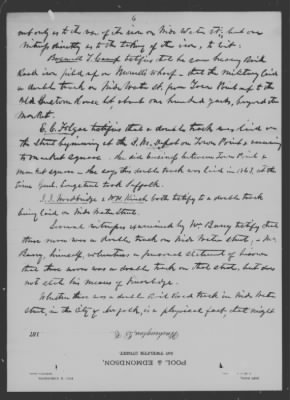 6
not only as to the use of the iron on Wide Water St; but one
witness directly as to the taking of the iron, to wit:
testifies that he saw heavy Bird
Road iron piled up on wharf - that the military laid
a double track on Wide Water St. from Town Point up to the
Old Custom House lot about one hundred yards, beyond the
market.
E. C. Folger testifies that a double track was laid on
the street beginning at the Depot on Town Point & running
to market square. He did business between Town Point &
market square - He says this double track was laid in 1863, at the
time Genl. Longstreet took Suffolk.
J. J. Woodbridge & both testify to a double track
being laid on Wide Water Street.
Several witnesses examined by Mr Barry testify that
there never was a double track on Wide Water street, - Mr
Barry, himself, volunteers a personal statement of his own
that there never was a double track on that street, but does
not state his means of knowledge.
Whether there was a double Rail Road track in Wide Water
street, in the City of Norfolk, is a physical fact, that might
187
Washington, D. C.
POOL & EDMONDSON,